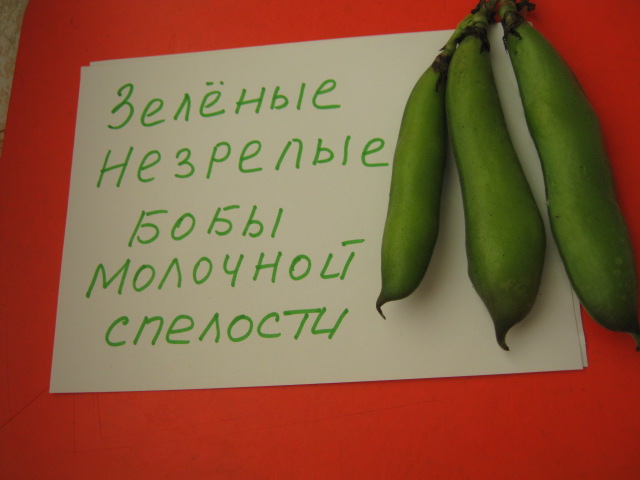 Зелёные
незрелые
бобы
молочной
спелости